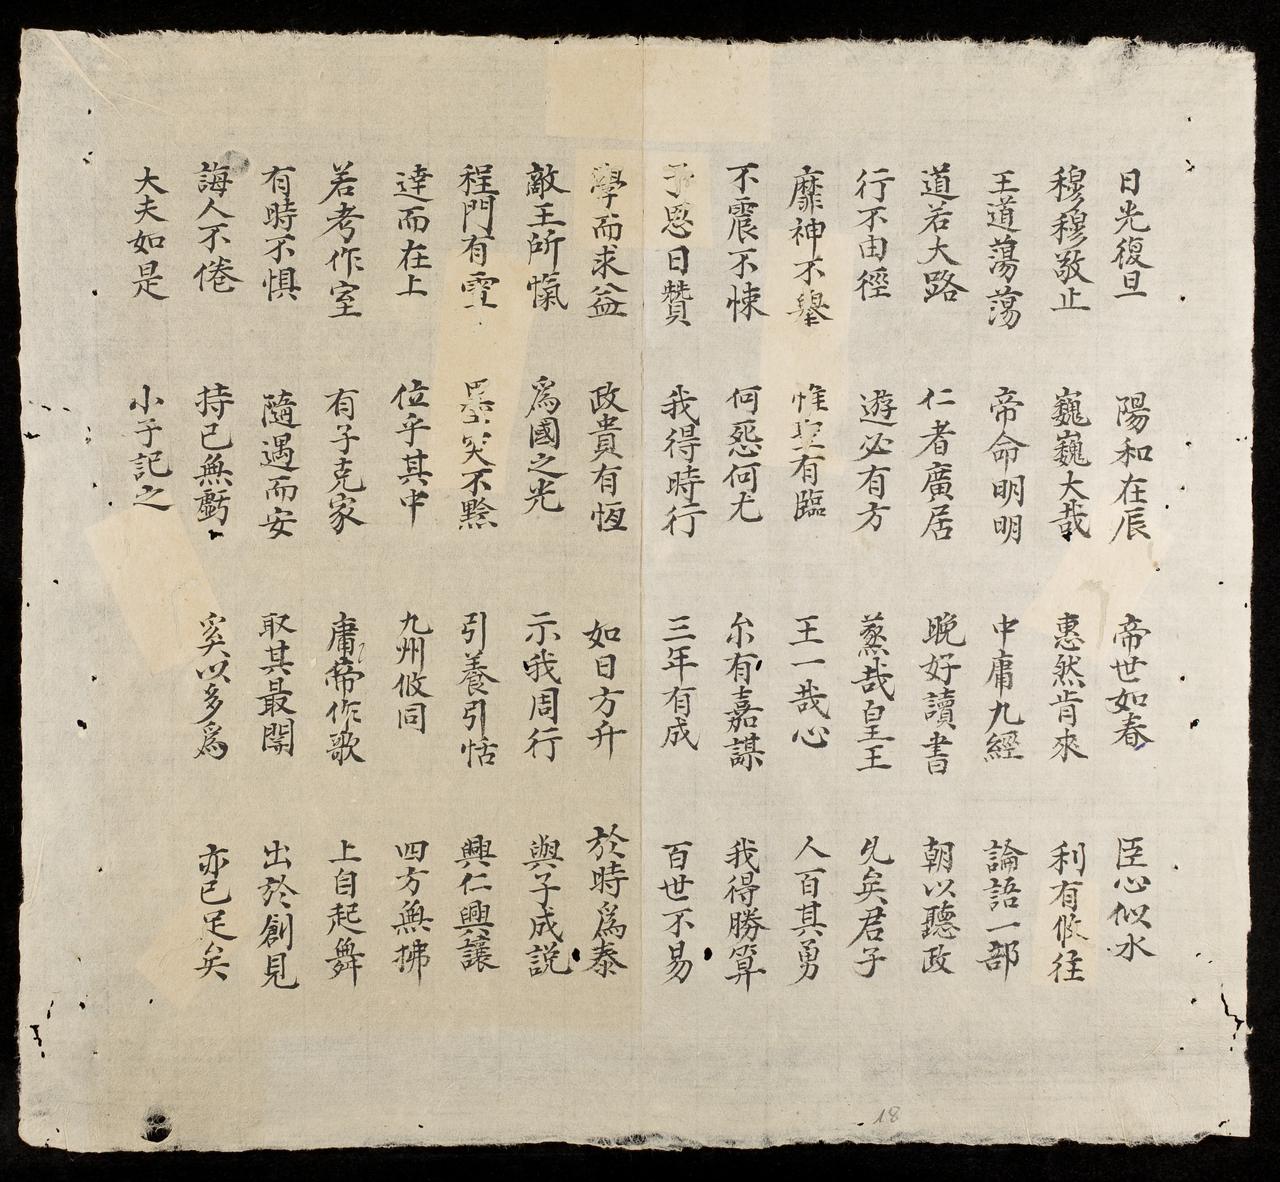 日光復旦 陽和在辰 帝世如春 臣心似水
穆穆敬止 巍巍大哉 惠然肯來 利有攸往
王道蕩蕩 帝命明明 中庸九經 論語一部
道若大路 仁者廣居 晚好讀書 朝以聽政
行不由徑 遊必有方 蒸哉皇王 允矣君子
靡神不舉 惟聖有臨 王一哉心 人百其勇
不震不悚 何怨何尤 尔有嘉謀 我得勝算
予思日贊 我得時行 三年有成 百世不易
學而求益 政貴有恆 如日方升 於時爲泰
敵王所愾 爲國之光 示我周行 與子成説
程門有雪 墨突不黔 引養引恬 興仁興讓
達而在上 位乎其中 九州攸同 四方無拂
若考作室 有子克家 庸帝作歌 上自起舞
有時不惧 隨遇而安 取其最閙 出於創見
誨人不倦 持己無虧 奚以多爲 亦已足矣
大夫如是 小子記之
18